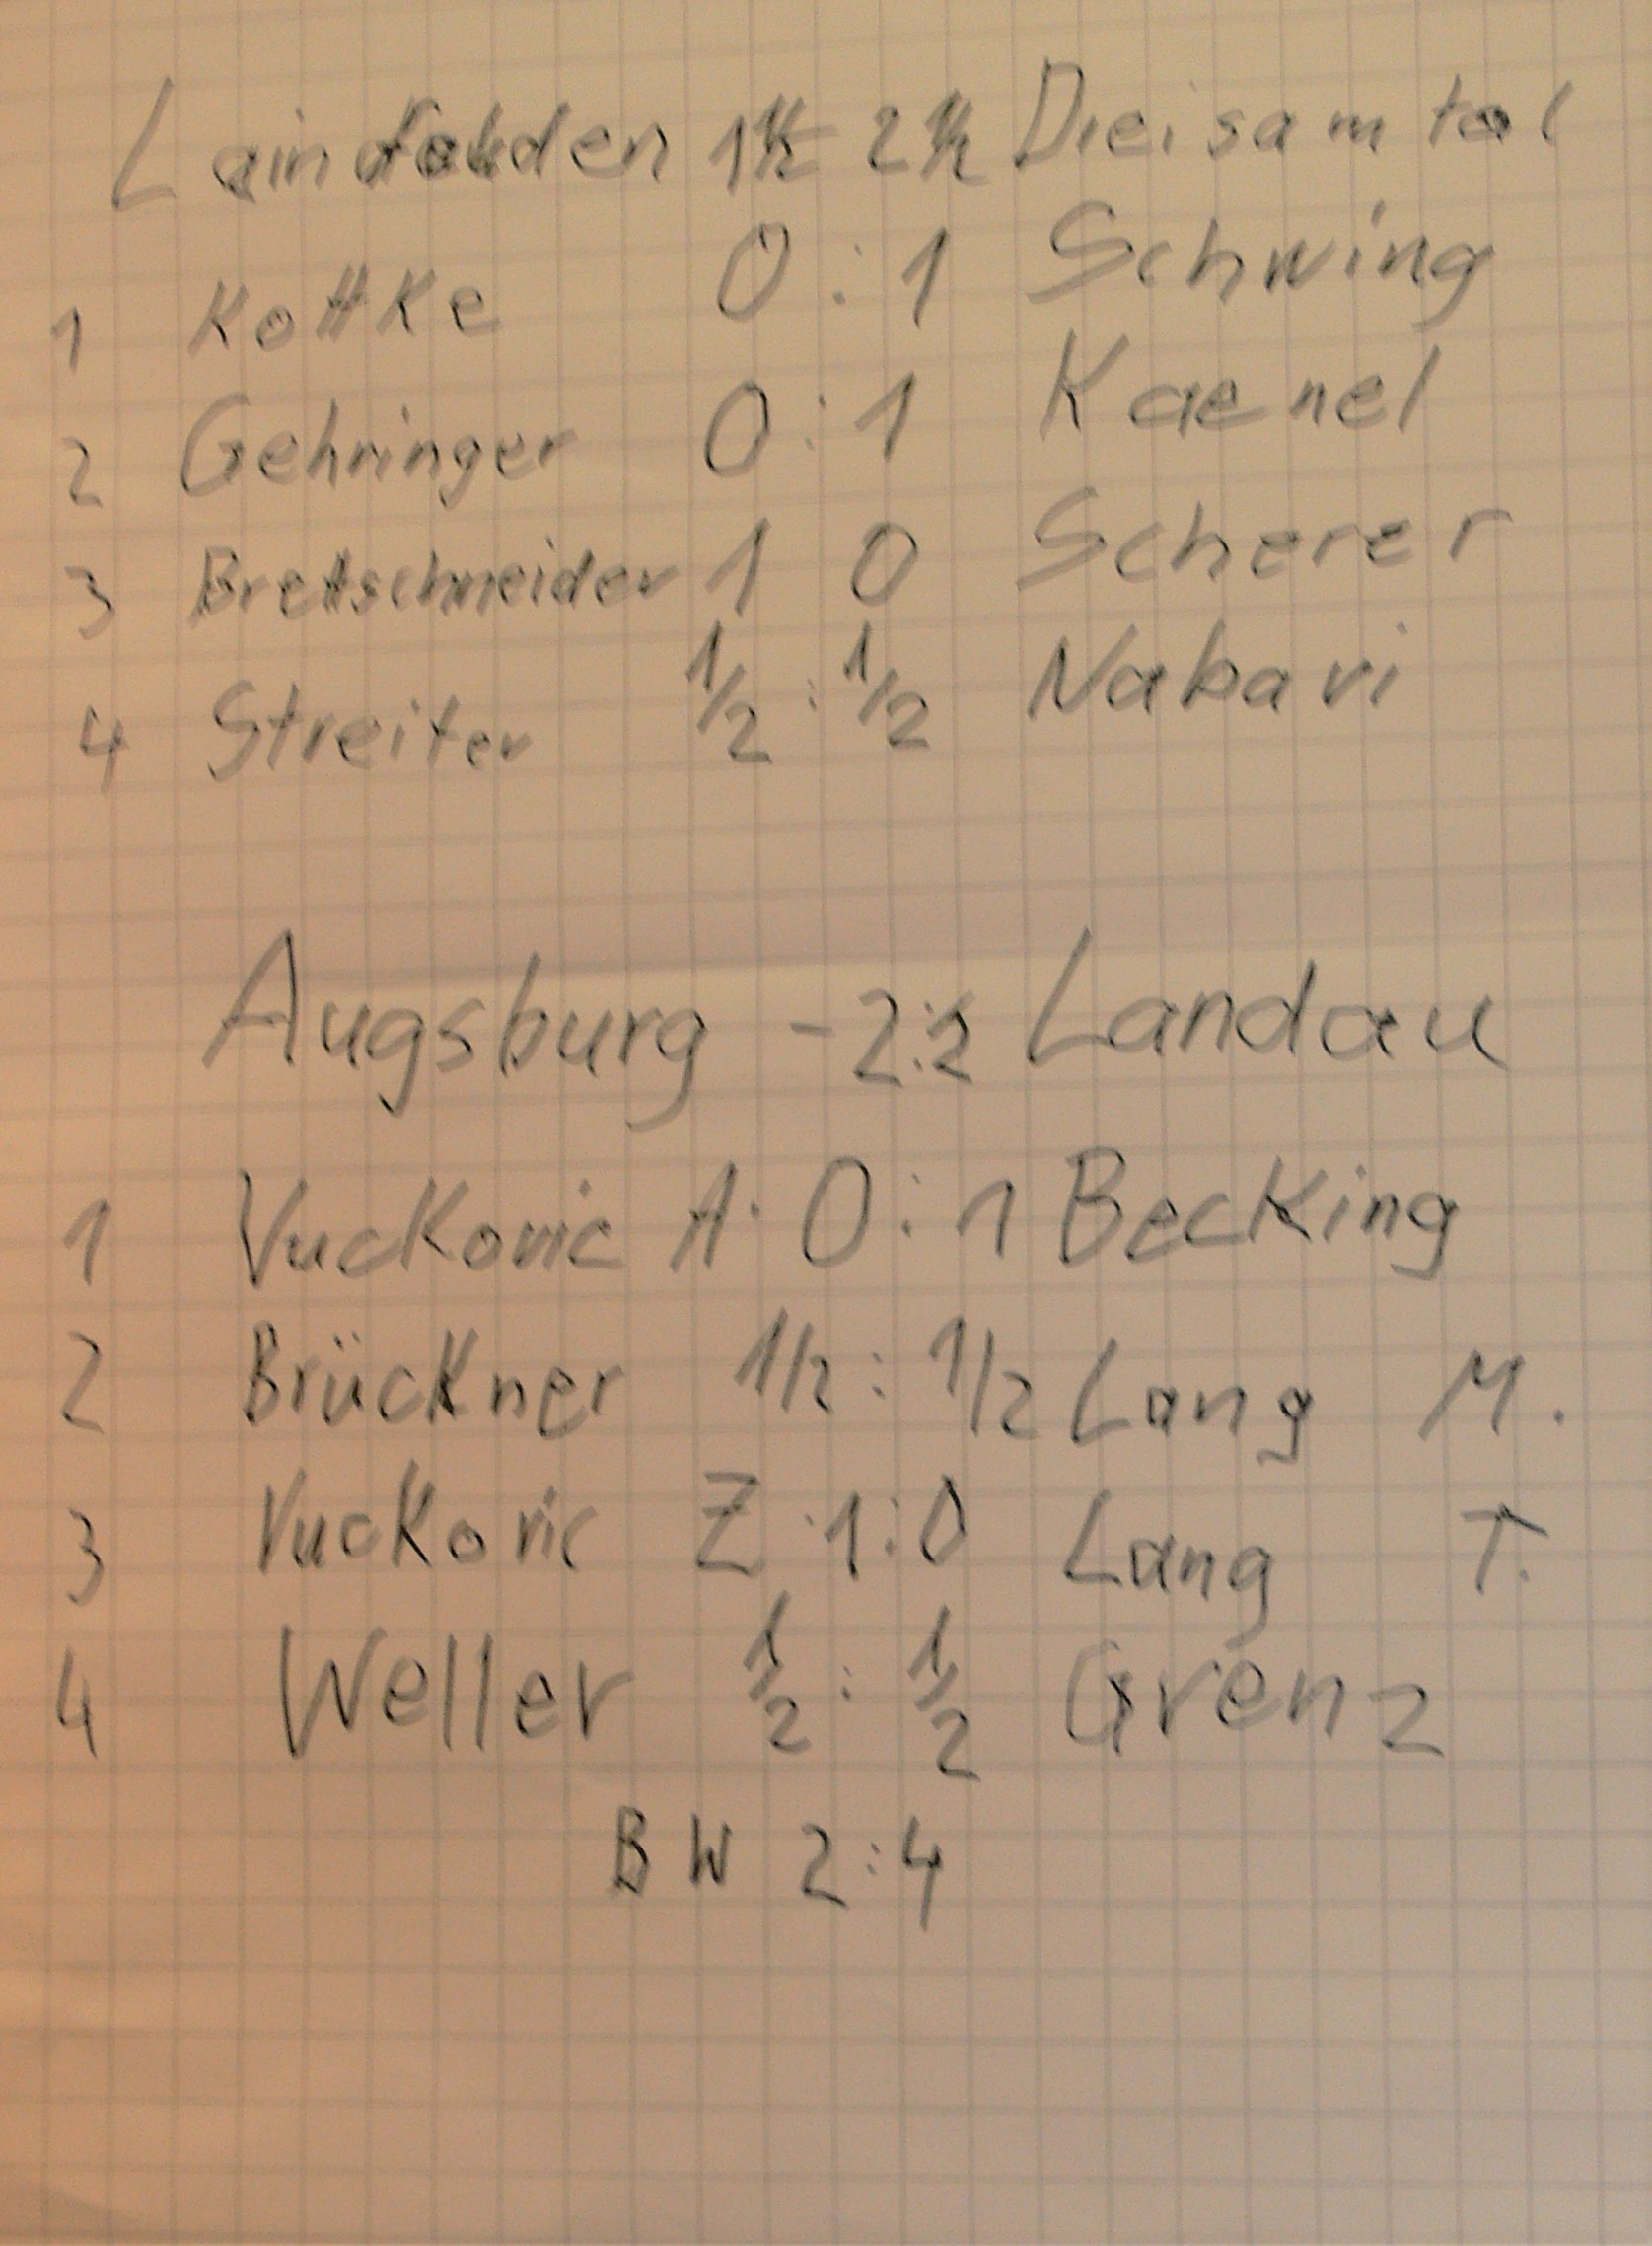 1½ 2½ Dreisamtal
1 Kottke 0 : 1 Schwing
2 Gehringer 0 : 1 Kaenel
3 Bretschneider 1 0 Scherer
4 Streiter ½ : ½ Nabavi
Augsburg - 2:2 Landau
1 Vuckovic A. 0 : 1 Becking
2 Brückner 1/2 : 1/2 Lang M.
3 Vuckovic Z. 1:0 Lang T.
4 Weller ½ : ½ Grenz
BW 2:4